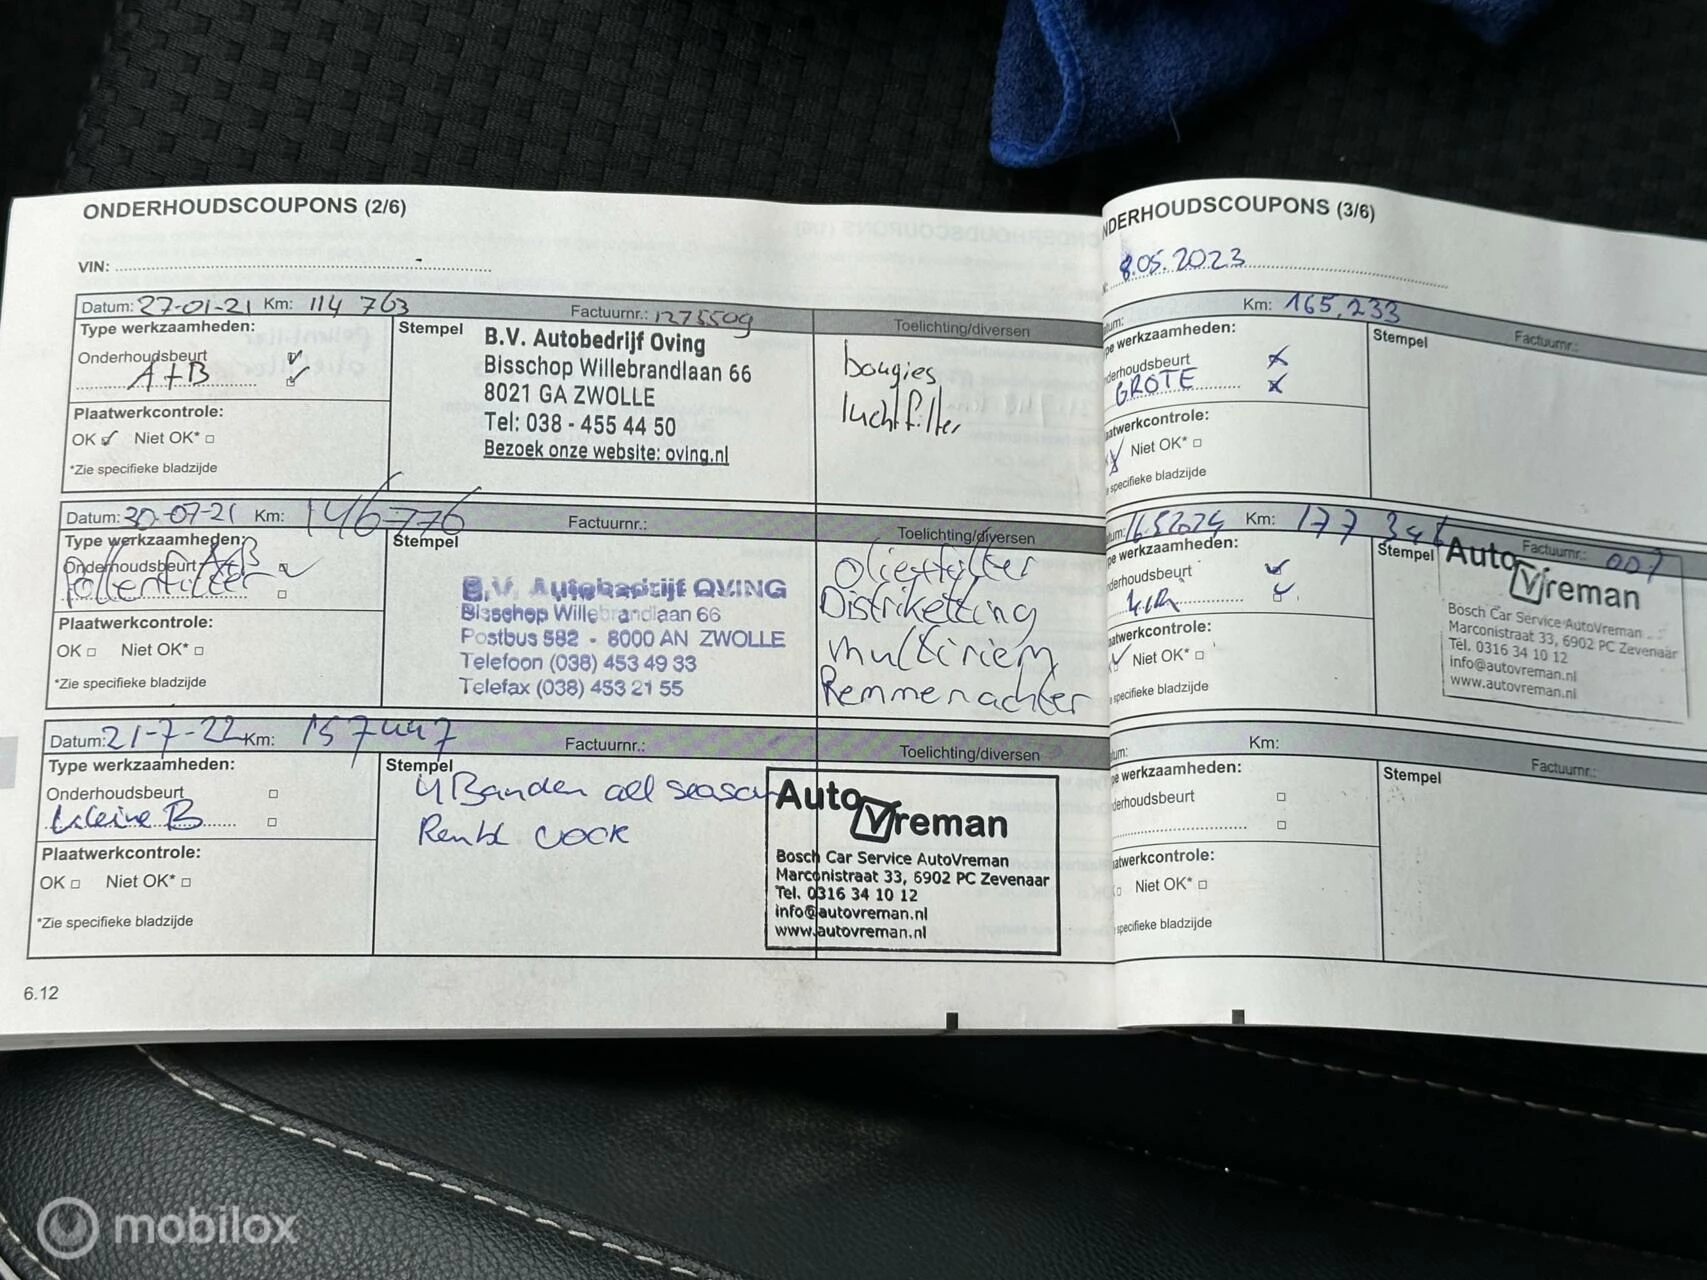 ONDERHOUDSCOUPONS (2/6)
VIN:
Datum: 27-01-21 Km: 114 763 Factuurnr.: 1275509
Type werkzaamheden:
Stempel
Toelichting/diversen
Onderhoudsbeurt
A+B
Plaatwerkcontrole:
OK Niet OK*
*Zie specifieke bladzijde
B.V. Autobedrijf Oving
Bisschop Willebrandlaan 66
8021 GA ZWOLLE
Tel: 038 - 455 44 50
Bezoek onze website: oving.nl
bougies
luchtfilter
Datum: 30-07-21 Km: 146776 Factuurnr.:
Type werkzaamheden:
Stempel
Toelichting/diversen
Onderhoudsbeurt A+B
Pollenfilter
Plaatwerkcontrole:
OK Niet OK*
*Zie specifieke bladzijde
B.V. Autobedrijf OVING
Bisschop Willebrandlaan 66
Postbus 582 - 8000 AN ZWOLLE
Telefoon (038) 453 49 33
Telefax (038) 453 21 55
Oliefilter
Distriketting
multiriem
Remmen achter
Datum: 21-7-22 Km: 157447 Factuurnr.:
Type werkzaamheden:
Stempel
Toelichting/diversen
Onderhoudsbeurt
kleine B
Plaatwerkcontrole:
OK Niet OK*
*Zie specifieke bladzijde
4 Banden all season
AutoVreman
Bosch Car Service AutoVreman
Marconistraat 33, 6902 PC Zevenaar
Tel. 0316 34 10 12
info@autovreman.nl
www.autovreman.nl
6.12
NDERHOUDSCOUPONS (3/6)
8.05.2023
tum: Km: 165,233 Factuurnr.:
pe werkzaamheden:
Stempel
derhoudsbeurt
GROTE
atwerkcontrole:
Niet OK*
specifieke bladzijde
tum: 16-5-2024 Km: 177 346 Factuurnr.: 007
pe werkzaamheden:
Stempel
derhoudsbeurt
atwerkcontrole:
Niet OK*
specifieke bladzijde
AutoVreman
Bosch Car Service AutoVreman
Marconistraat 33, 6902 PC Zevenaar
Tel. 0316 34 10 12
info@autovreman.nl
www.autovreman.nl
tum: Km: Factuurnr.:
pe werkzaamheden:
Stempel
derhoudsbeurt
atwerkcontrole:
Niet OK*
specifieke bladzijde
mobilox